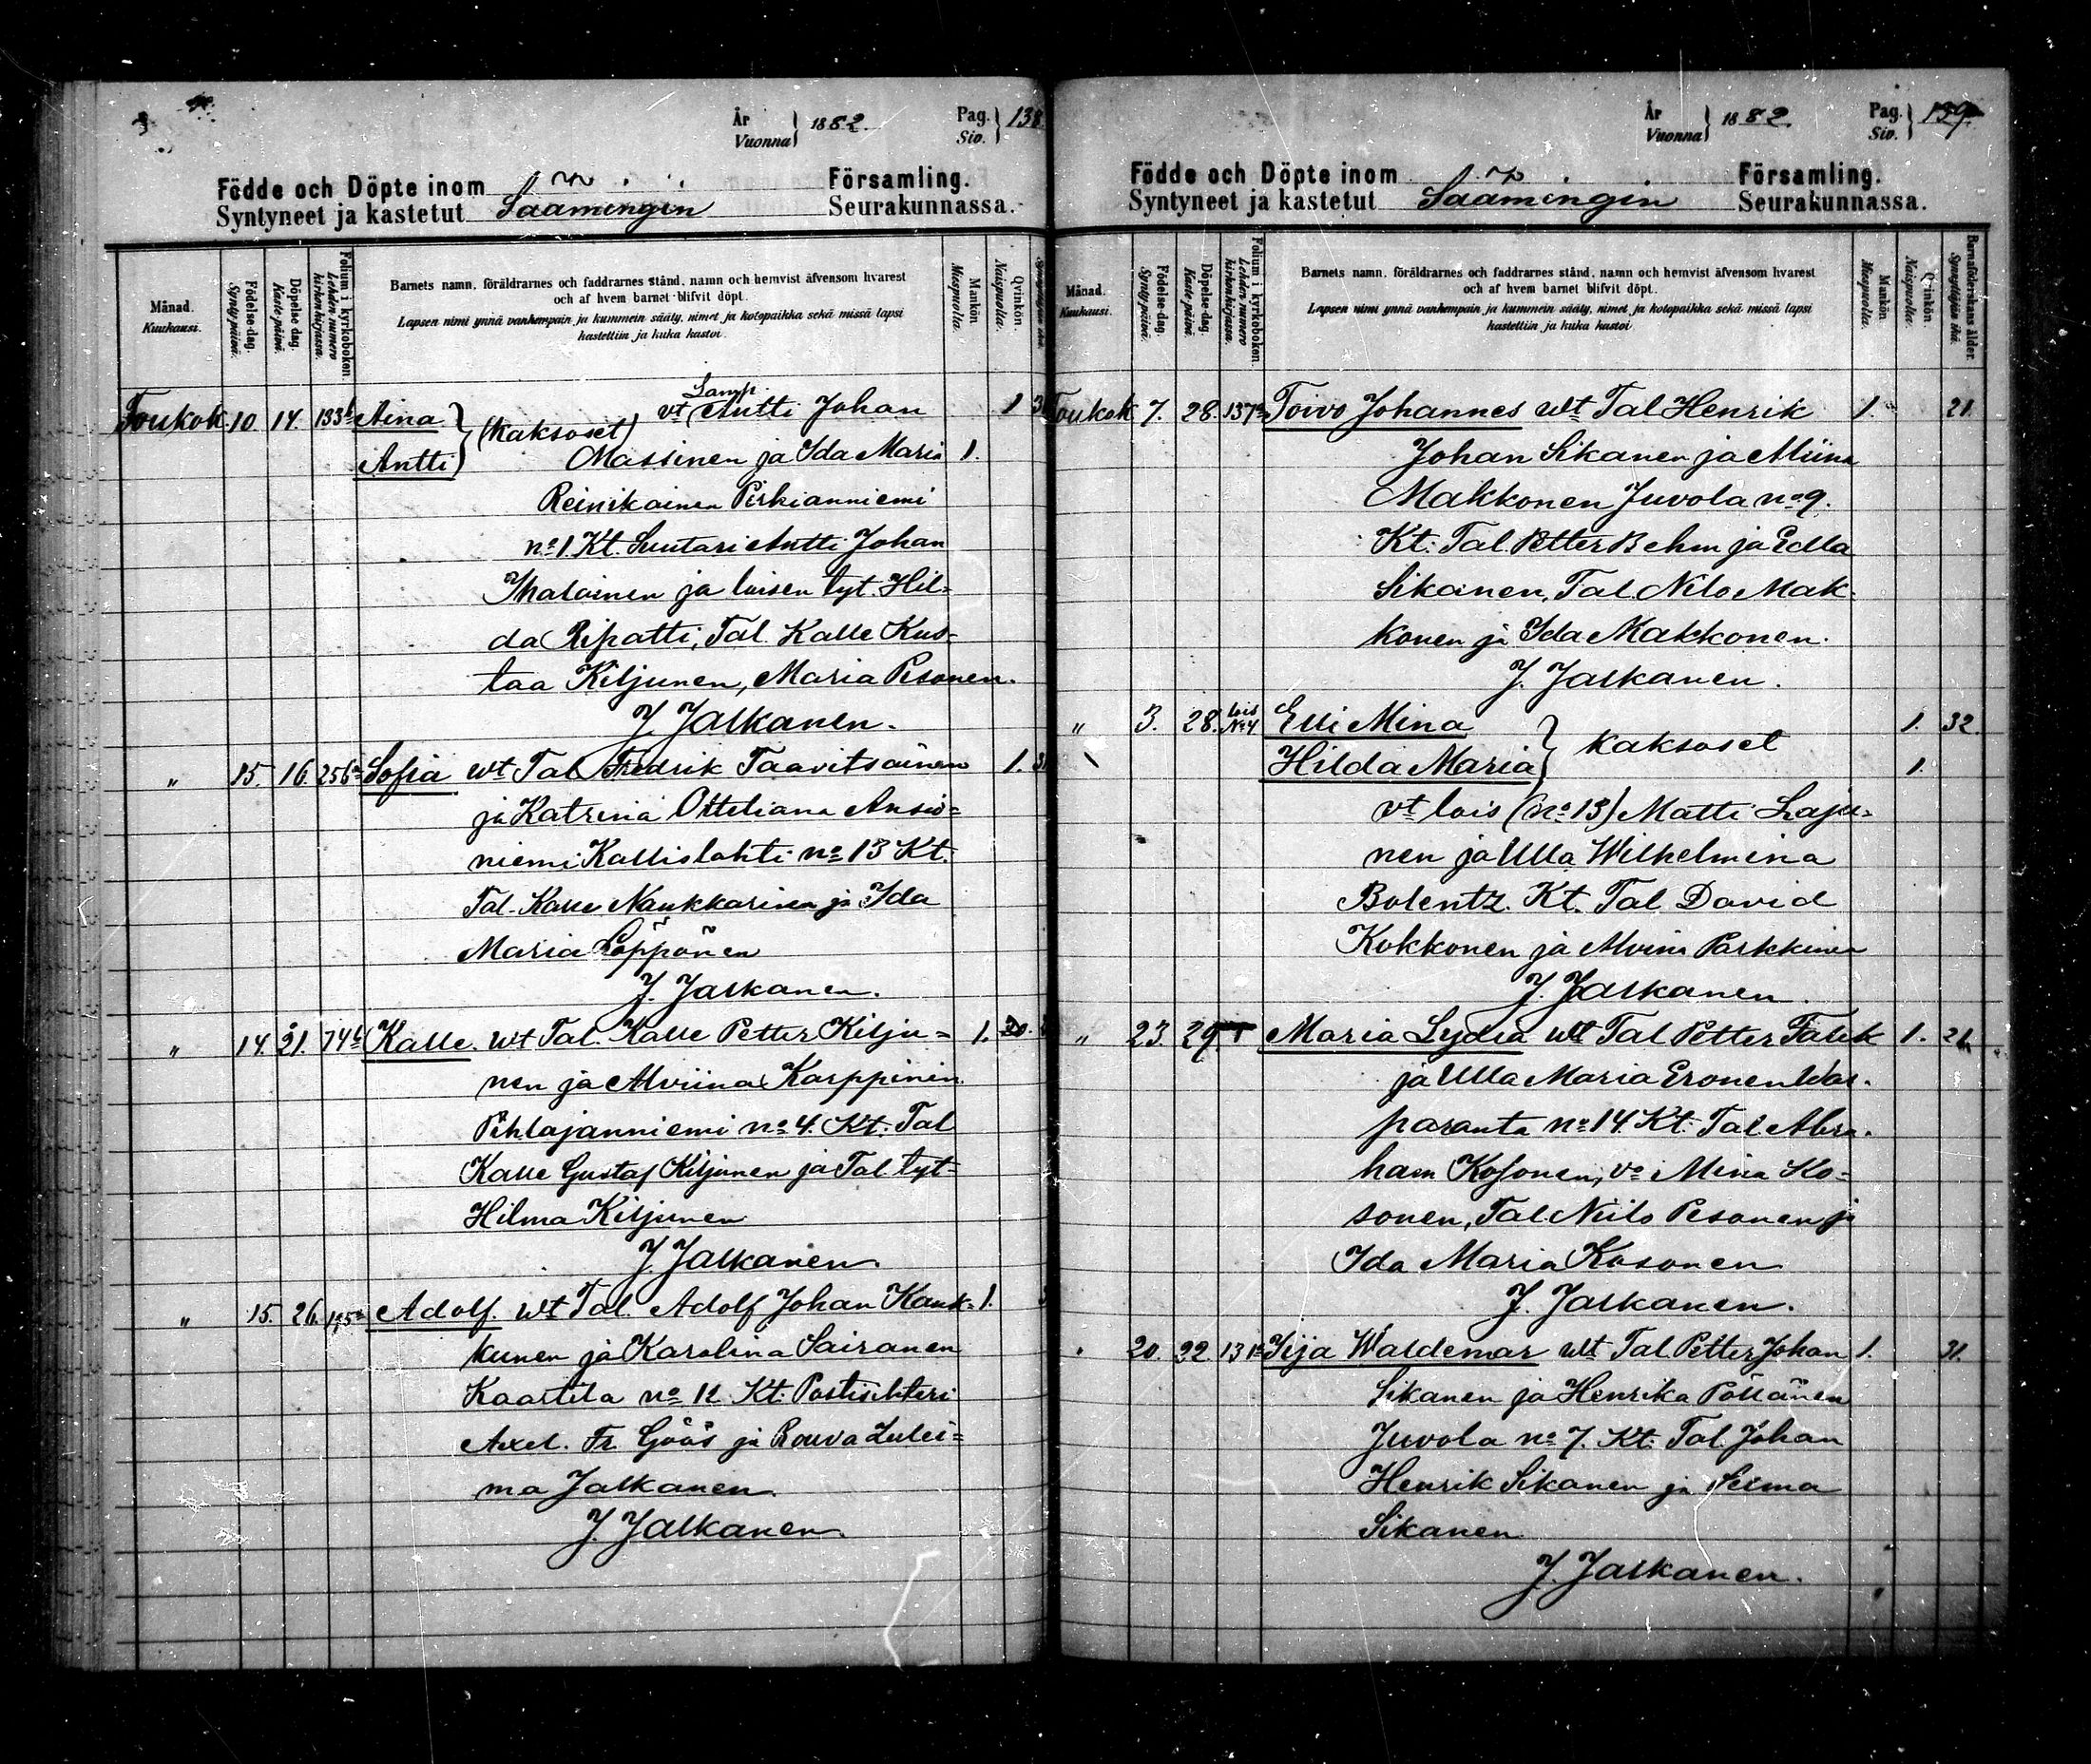 År Vuonna } 1882. Pag. Siv. } 138
Födde och Döpte inom Församling.
Syntyneet ja kastetut Säämingin Seurakunnassa.
Månad. Kuukausi.
Födelse-dag. Synty päivä.
Döpelse dag. Kaste päivä.
Folium i kyrkoboken. Lehden numero kirkonkirjassa.
Barnets namn, föräldrarnes och faddrarnes stånd, namn och hemvist äfvensom hvarest
och af hvem barnet blifvit döpt.
Lapsen nimi ynnä vanhempain ja kummein sääty, nimet ja kotopaikka sekä missä lapsi
kastettiin ja kuka kastoi.
Mankön Miespuolta.
Qvinkön. Naispuolta.
Toukok. 10 14. 133b Aina } (Kaksoset) vt Lamp. Antti Johan 1
Antti Massinen ja Ida Maria 1.
Reinikainen Pirkianniemi
no 1. Kt. Suutari Antti Johan
Ihalainen ja loisen tyt. Hil-
da Ripatti, Tal. Kalle Kus-
taa Kiljunen, Maria Pesonen.
J. Jalkanen.
" 15. 16. 256a Sofia wt Tal Fredrik Taavitsainen 1.
ja Katrina Otteliana Ansio=
niemi Kallislahti no 13 Kt.
Tal. Kalle Naukkarinen ja Ida
Maria Löppönen
J. Jalkanen.
" 14. 21. 74b Kalle. wt Tal. Kalle Petter Kilju= 1. 20.
nen ja Alviina Karppinen
Pihlajanniemi no 4. Kt. Tal
Kalle Gustaf Kiljunen ja Tal. tyt=
Hilma Kiljunen
J. Jalkanen
" 15. 26. Adolf. wt Tal. Adolf Johan Kauk= 1.
kunen ja Karolina Sairanen
Kaartila no 12 Kt. Postisihteri
Axel. Fr. Göös ja Rouva Zulei=
ma Jalkanen.
J. Jalkanen.
År Vuonna } 1882. Pag. Siv. } 139
Födde och Döpte inom Församling.
Syntyneet ja kastetut Säämingin Seurakunnassa.
Månad. Kuukausi.
Födelse-dag. Synty päivä.
Döpelse-dag. Kaste päivä.
Folium i kyrkoboken. Lehden numero kirkonkirjassa.
Barnets namn, föräldrarnes och faddrarnes stånd, namn och hemvist äfvensom hvarest
och af hvem barnet blifvit döpt.
Lapsen nimi ynnä vanhempain ja kummein sääty, nimet ja kotopaikka sekä missä lapsi
kastettiin ja kuka kastoi.
Mankön Miespuolta.
Qvinkön. Naispuolta.
Barnaföderskans ålder. Synnyttäjän ikä.
Toukok 7. 28. 137a Toivo Johannes wt Tal Henrik 1. 21.
Johan Sikanen ja Miina
Makkonen Juvola no 9.
Kt. Tal. Petter Behm ja Edla
Sikanen, Tal. Nilo Mak-
konen ja Ida Makkonen.
J. Jalkanen.
" 3. 28. lois No 4 Elli Mina 1. 32.
Hilda Maria } Kaksoset 1.
vt lois (no 13) Matti Laju-
nen ja Ulla Wilhelmina
Bolentz. Kt. Tal David
Kokkonen ja Alvina Parkkinen
J. Jalkanen.
" 23. 29. Maria Lydia wt Tal Petter Falck 1.
ja Ulla Maria Eronen War-
paranta no 14. Kt. Tal Abra-
ham Kosonen, vo Mina Ko-
sonen, Tal Niilo Pesonen ja
Ida Maria Kosonen
J. Jalkanen.
" 20. 22. 131a Yrja Waldemar wt Tal. Petter Johan 1. 31.
Sikanen ja Henrika Pöllänen
Juvola no 7. Kt. Tal. Johan
Henrik Sikanen ja Selma
Sikanen
J. Jalkanen.